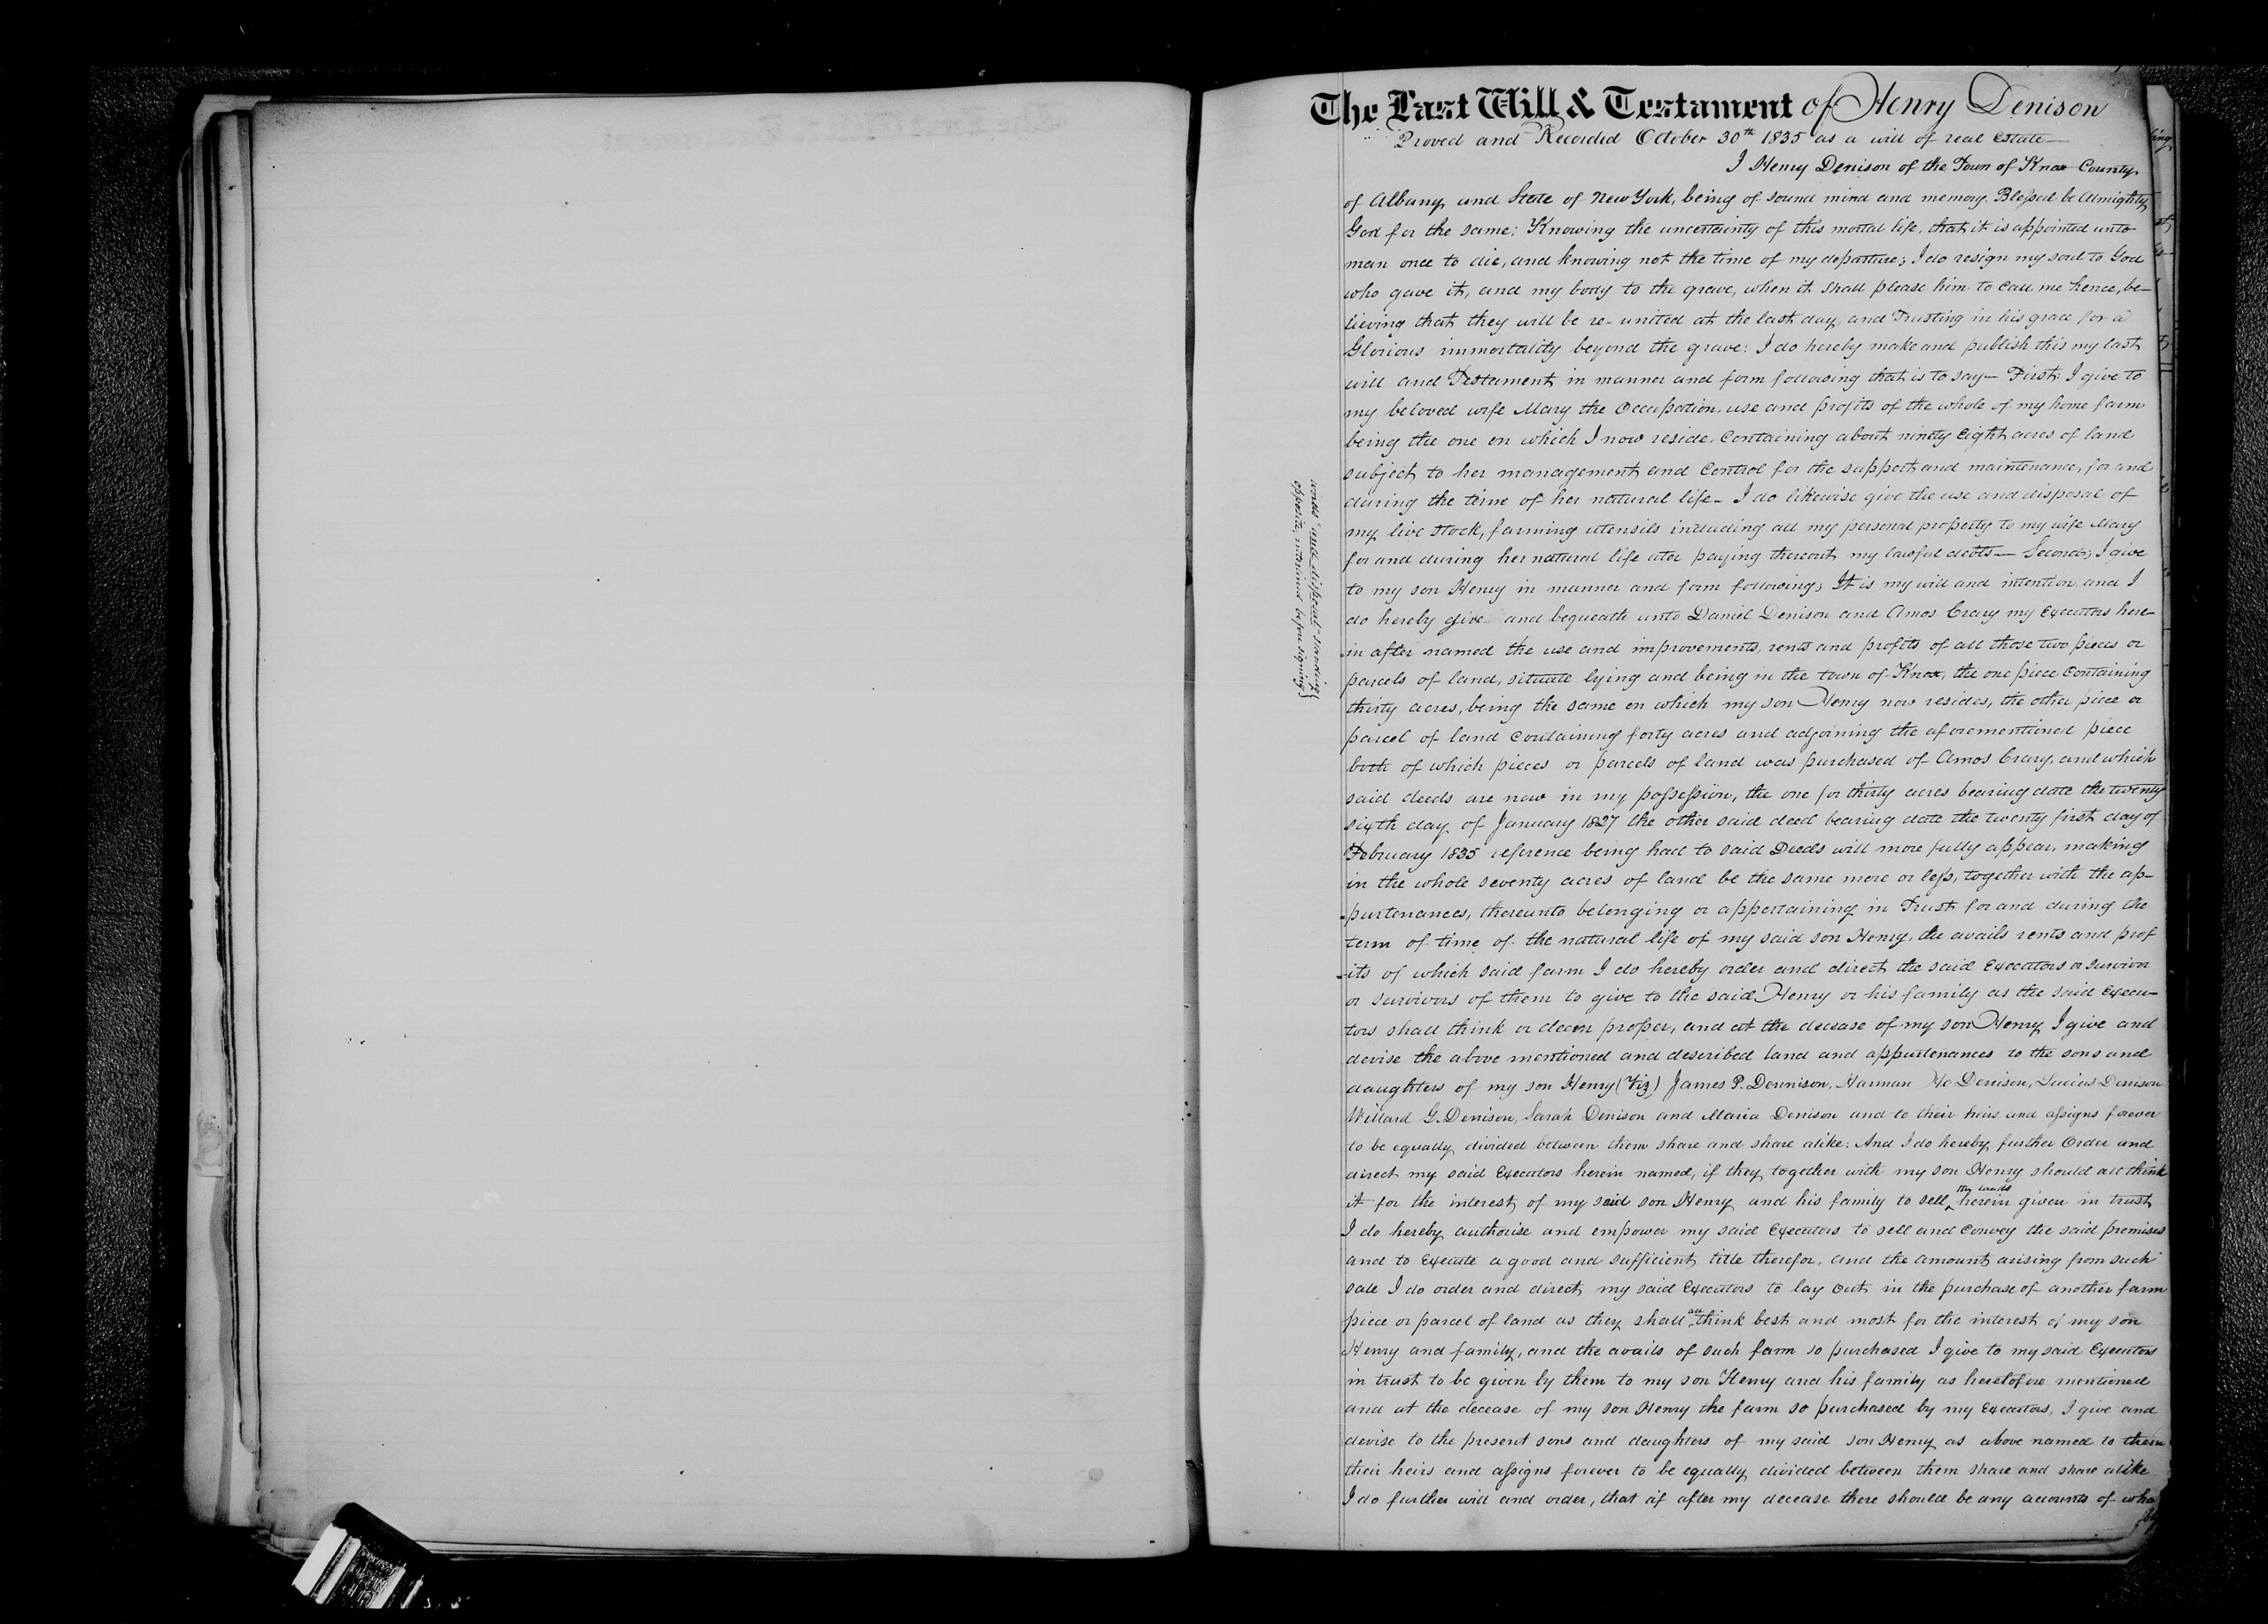 The Last Will & Testament of Henry Denison
Proved and Recorded October 30th 1835 as a will of real Estate—
I Henry Denison of the Town of Knox County
of Albany and State of New York, being of sound mind and memory. Blessed be Almighty
God for the same: Knowing the uncertainty of this mortal life, that it is appointed unto
man once to die, and knowing not the time of my departure; I do resign my soul to God
who gave it, and my body to the grave, when it shall please him to call me hence, be-
lieving that they will be re-united at the last day, and Trusting in his grace for a
Glorious immortality beyond the grave: I do hereby make and publish this my last
will and Testament in manner and form following that is to say— First: I give to
my beloved wife Mary the Occupation, use and profits of the whole of my home farm
being the one on which I now reside, Containing about ninety Eight acres of land
subject to her management and Control for the support and maintenance, for and
during the time of her natural life— I do likewise give the use and disposal of
my live stock, farming utensils including all my personal property to my wife Mary
for and during her natural life ater paying thereout my lawful debts— Second; I give
to my son Henry in manner and form following; It is my will and intention and I
do hereby give and bequeath unto Daniel Denison and Amos Crary my Executors here-
in after named the use and improvements, rents and profits of all those two pieces or
parcels of land, situate lying and being in the town of Knox, the one piece Containing
thirty acres, being the same on which my son Henry now resides, the other piece or
parcel of land Containing forty acres and adjoining the aforementioned piece
both of which pieces or parcels of land was purchased of Amos Crary, and which
said deeds are now in my possession, the one for thirty acres bearing date the twenty
sixth day of January 1827 the other said deed bearing date the twenty first day of
February 1835 reference being had to said Deeds will more fully appear, making
in the whole seventy acres of land be the same more or less, together with the ap-
purtenances, thereunto belonging or appertaining in Trust for and during the
term of time of the natural life of my said son Henry, the avails rents and prof
-its of which said farm I do hereby order and direct the said Executors or survivor
or survivors of them to give to the said Henry or his family as the said Execu-
tors shall think or deem proper, and at the decease of my son Henry I give and
devise the above mentioned and described land and appurtenances to the sons and
daughters of my son Henry (Viz) James P. Dennison, Harman Denison, Lucius Denison
Willard G. Denison, Sarah Denison and Maria Denison and to their heirs and assigns forever
to be equally divided between them share and share alike: And I do hereby further Order and
direct my said Executors herein named, if they together with my son Henry should all think
it for the interest of my said son Henry and his family to sell the lands herein given in trust
I do hereby authorise and empower my said Executors to sell and Convey the said premises
and to Execute a good and sufficient title therefor, and the amount arising from such
sale I do order and direct my said Executors to lay out in the purchase of another farm
piece or parcel of land as they shall all think best and most for the interest of my son
Henry and family, and the avails of such farm so purchased I give to my said Executors
in trust to be given by them to my son Henry and his family as heretofore mentioned
and at the decease of my son Henry the farm so purchased by my Executors, I give and
devise to the present sons and daughters of my said son Henry as above named to them
their heirs and assigns forever to be equally divided between them share and share alike
I do further will and order, that if after my decease there should be any accounts of wha
words "and disposal"
opposite, before signing